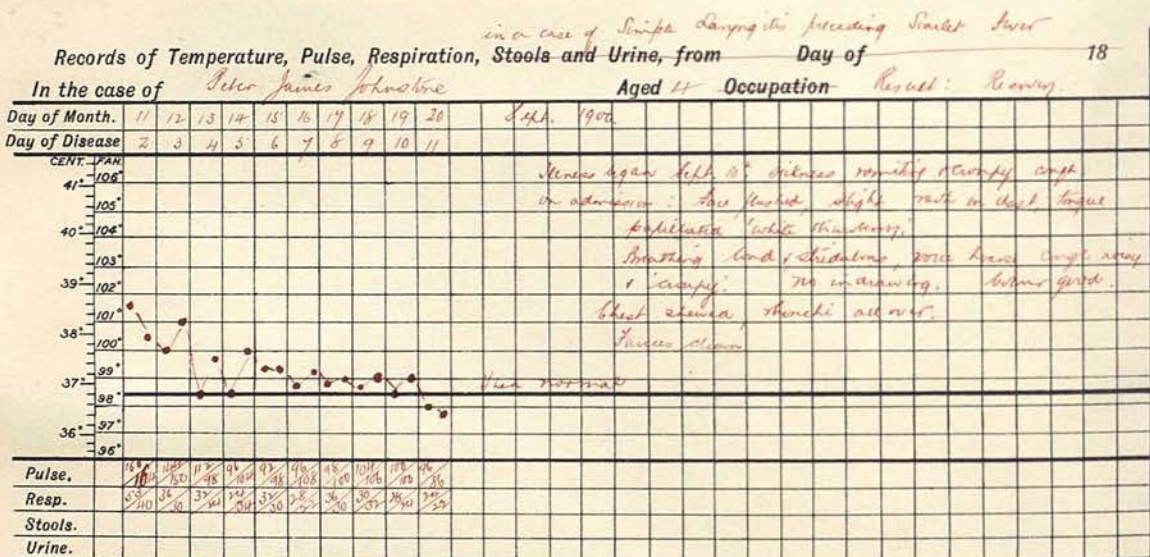 in a case of Simple Laryngitis preceding Scarlet Fever
Records of Temperature, Pulse, Respiration, Stools and Urine, from Day of 18
In the case of Peter James Johnstone Aged 4 Occupation Result: Recovery.
Day of Month. 11 12 13 14 15 16 17 18 19 20 Sept. 1900
Day of Disease 2 3 4 5 6 7 8 9 10 11
CENT. FAH.
106°
41°
105°
40° 104°
103°
39°
102°
101°
38°
100°
99°
37°
98°
97°
36°
96°
Illness began Sept. 10th sickness vomiting & croupy cough
on admission: Face flushed, slight rash on chest, tongue
papillated
Breathing loud & stridulous, voice hoarse cough noisy
& 'croupy'. no indrawing. colour good.
Chest rhonchi all over.
Fauces clean
then normal
Pulse. 112/98 96/104 92/98 96/108 98/100 104/106 100/100 96/86
Resp. 36/30 32/30 36/30 30/32
Stools.
Urine.